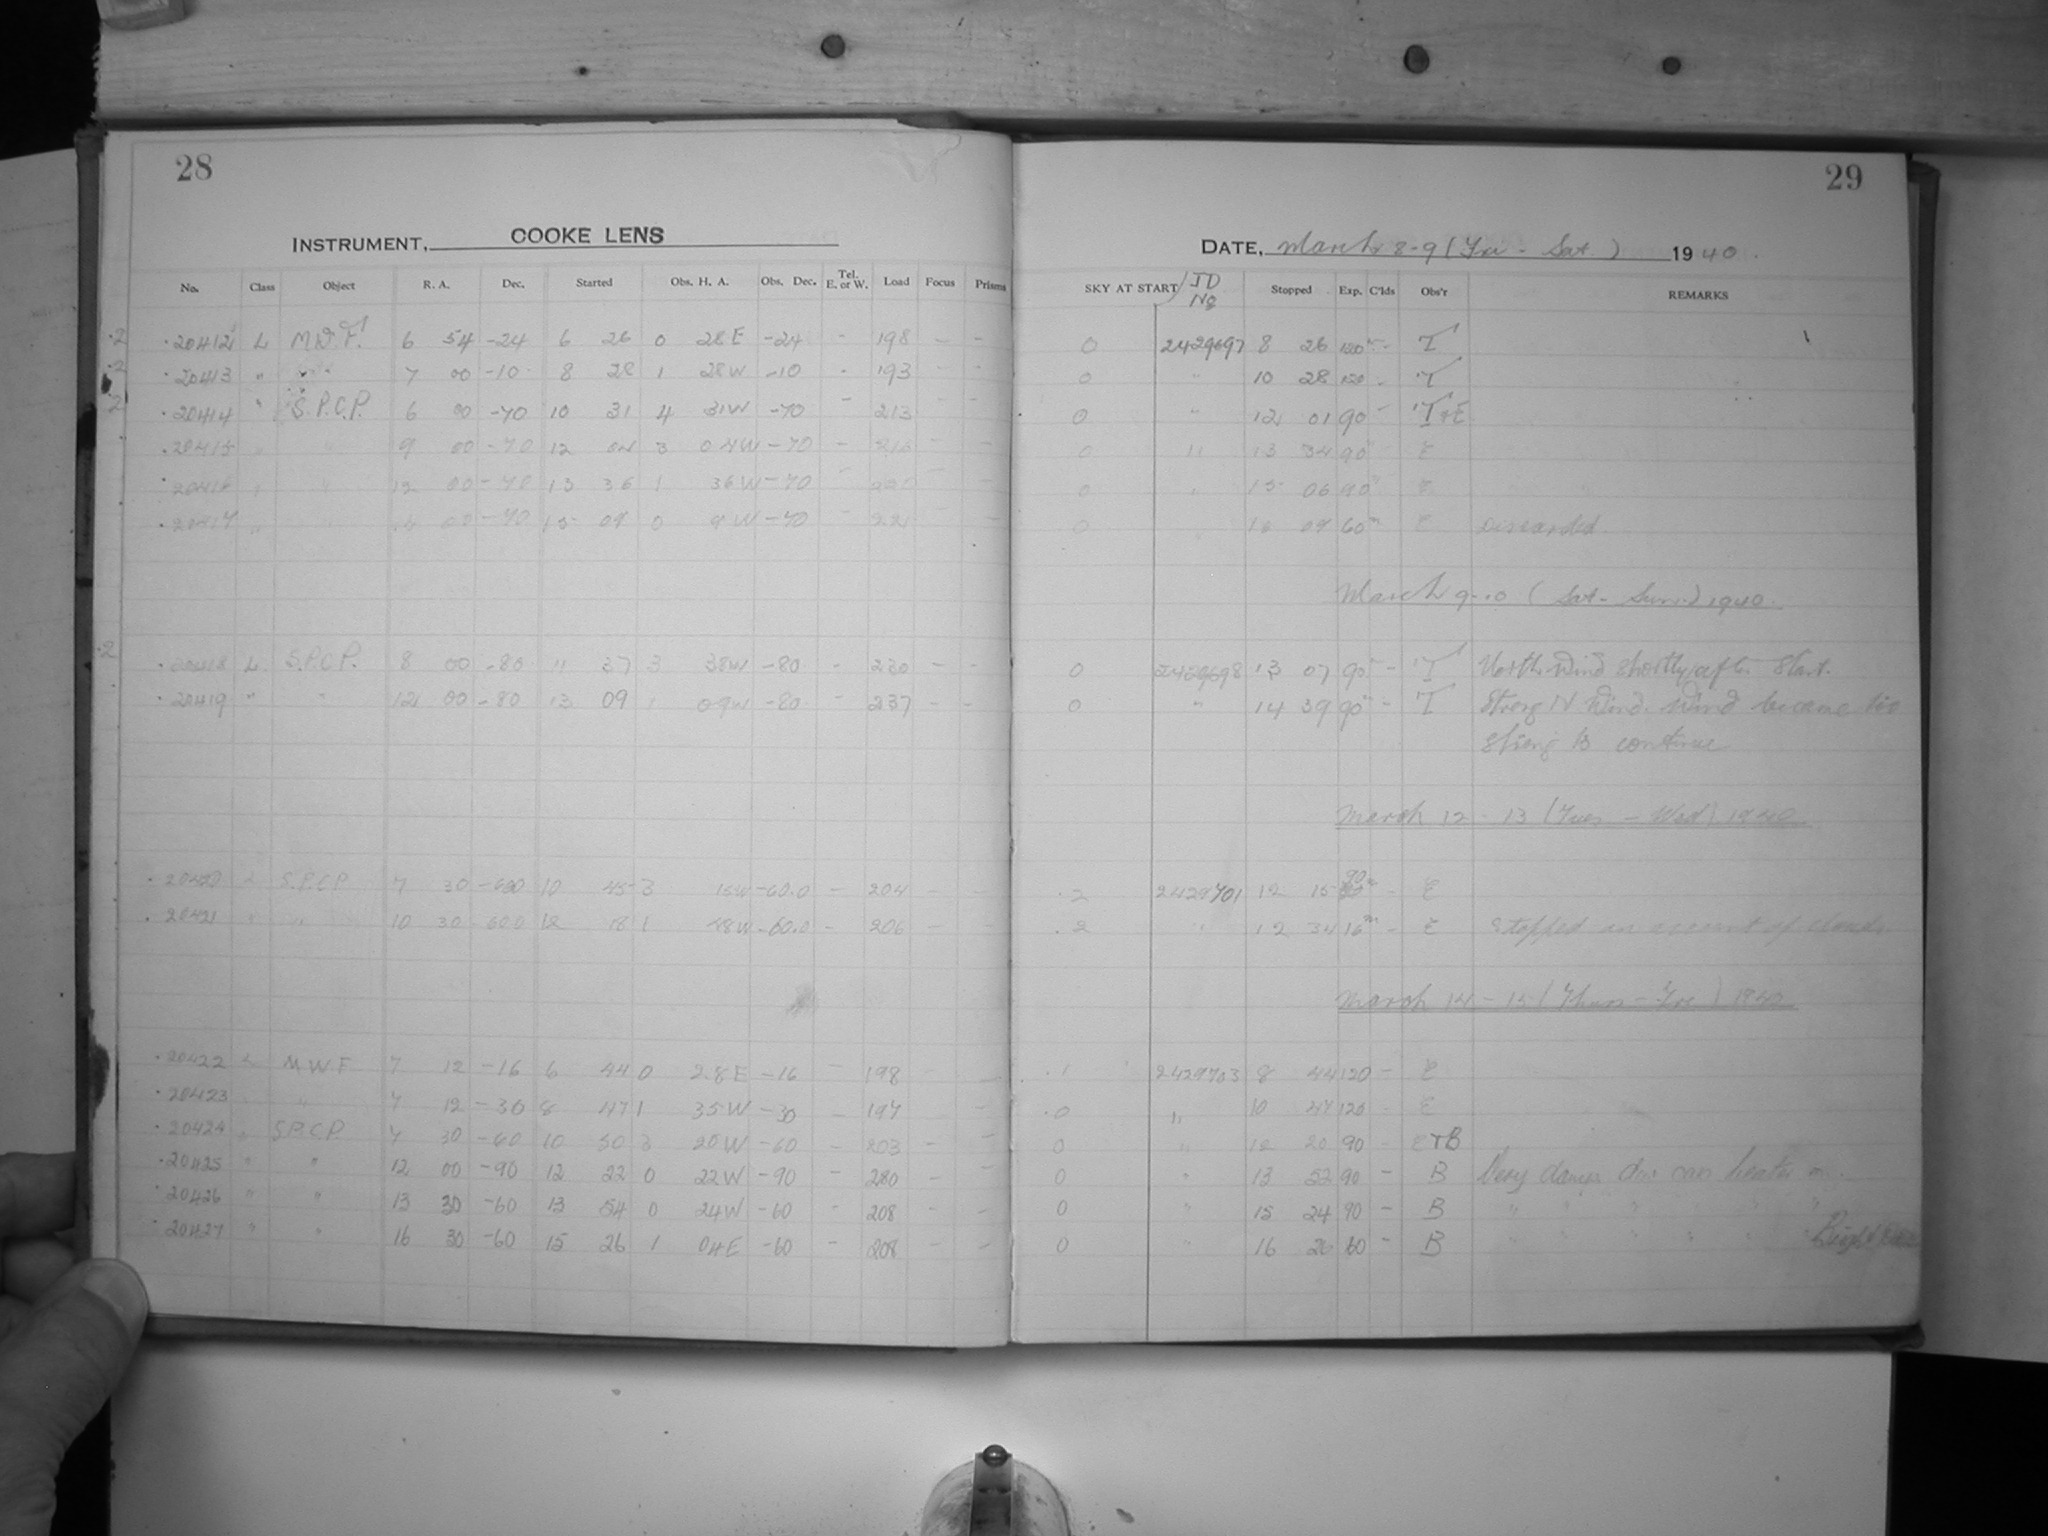 28
INSTRUMENT, COOKE LENS
No. Class Object R. A. Dec. Started Obs. H. A. Obs. Dec. Tel. E. or W. Load Focus Prisms
20412 L M.W.F. 6 54 -24 6 26 0 28E -24 - 198 - -
20413 " " 7 00 -10 8 28 1 28W -10 - 193 - -
20414 " S.P.C.P. 6 00 -70 10 31 4 31W -70 - 213 - -
20415 " " 9 00 -70 12 04 3 04W -70 -
20416 " " 12 00 -70 13 36 1 36W -70 -
20417 " " 00 -70 15 09 0 9W -70 -
20418 L S.P.C.P. 8 00 -80 11 37 3 38W -80 - 230 - -
20419 " " 12 00 -80 13 09 1 09W -80 - 237 - -
20420 L S.P.C.P. 7 30 10 45 3 15W -60.0 - 204 - -
20421 " " 10 30 12 18 1 48W -60.0 - 206 - -
20422 L M W F 7 12 -16 6 44 0 28E -16 - 198 - -
20423 " 7 12 -30 8 47 1 35W -30 - 197 -
20424 " S.P.C.P. 7 30 -60 10 50 3 20W -60 - 203 - -
20425 " " 12 00 -90 12 22 0 22W -90 - 280 - -
20426 " " 13 30 -60 13 54 0 24W -60 - 208 - -
20427 " " 16 30 -60 15 26 1 04E -60 - 208 - -
29
DATE, March 8-9 (Fri - Sat.) 1940.
SKY AT START JD No Stopped Exp. C'lds Obs'r REMARKS
0 2429697 8 26 120 - T
0 " 10 28 120 - T
0 " 12 01 90 - T+E
0 " 13 34 90 E
0 " 15 06 90 E
0 " 16 09 60m E Discarded
March 9-10 (Sat - Sun.) 1940.
0 2429698 13 07 90 - T North wind shortly after start.
0 " 14 39 90 - T Strong N Wind. Wind became too
strong to continue
March 12 - 13 (Tues - Wed) 1940
.2 2429701 12 15 90m - E
.2 " 12 34 16m - E Stopped on account of clouds
March 14 - 15 (Thurs - Fri) 1940
.1 2429703 8 44 120 - E
.0 " 10 47 120 - E
0 " 12 20 90 - E+B
0 " 13 52 90 - B Very damp. Dew cap heater on.
0 " 15 24 90 - B " " " " "
0 " 16 26 60 - B " " " " " Bright